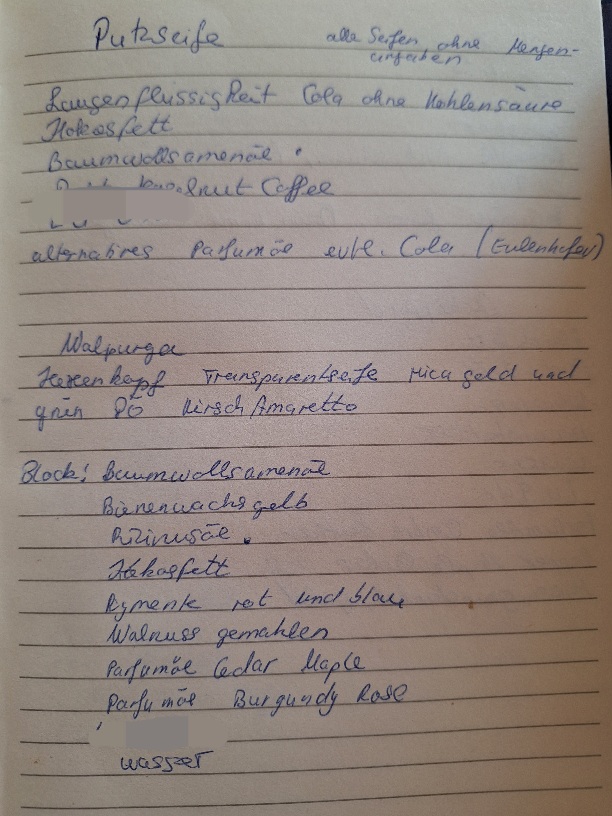 Putzseife
alle Seifen ohne Mengen-
angaben
Laugenflüssigkeit Cola ohne Kohlensäure
Kokosfett
Baumwollsamenöl
Hazelnut Coffee
alternatives Parfümöl evtl. Cola (Eulenhafer)
Walpurga
Hexenkopf Transparentseife Mica gold und
grün PÖ Kirsch Amaretto
Block: Baumwollsamenöl
Bienenwachs gelb
Rizinusöl
Kokosfett
Pigmente rot und blau
Walnuss gemahlen
Parfümöl Cedar Maple
Parfümöl Burgundy Rose
wasser